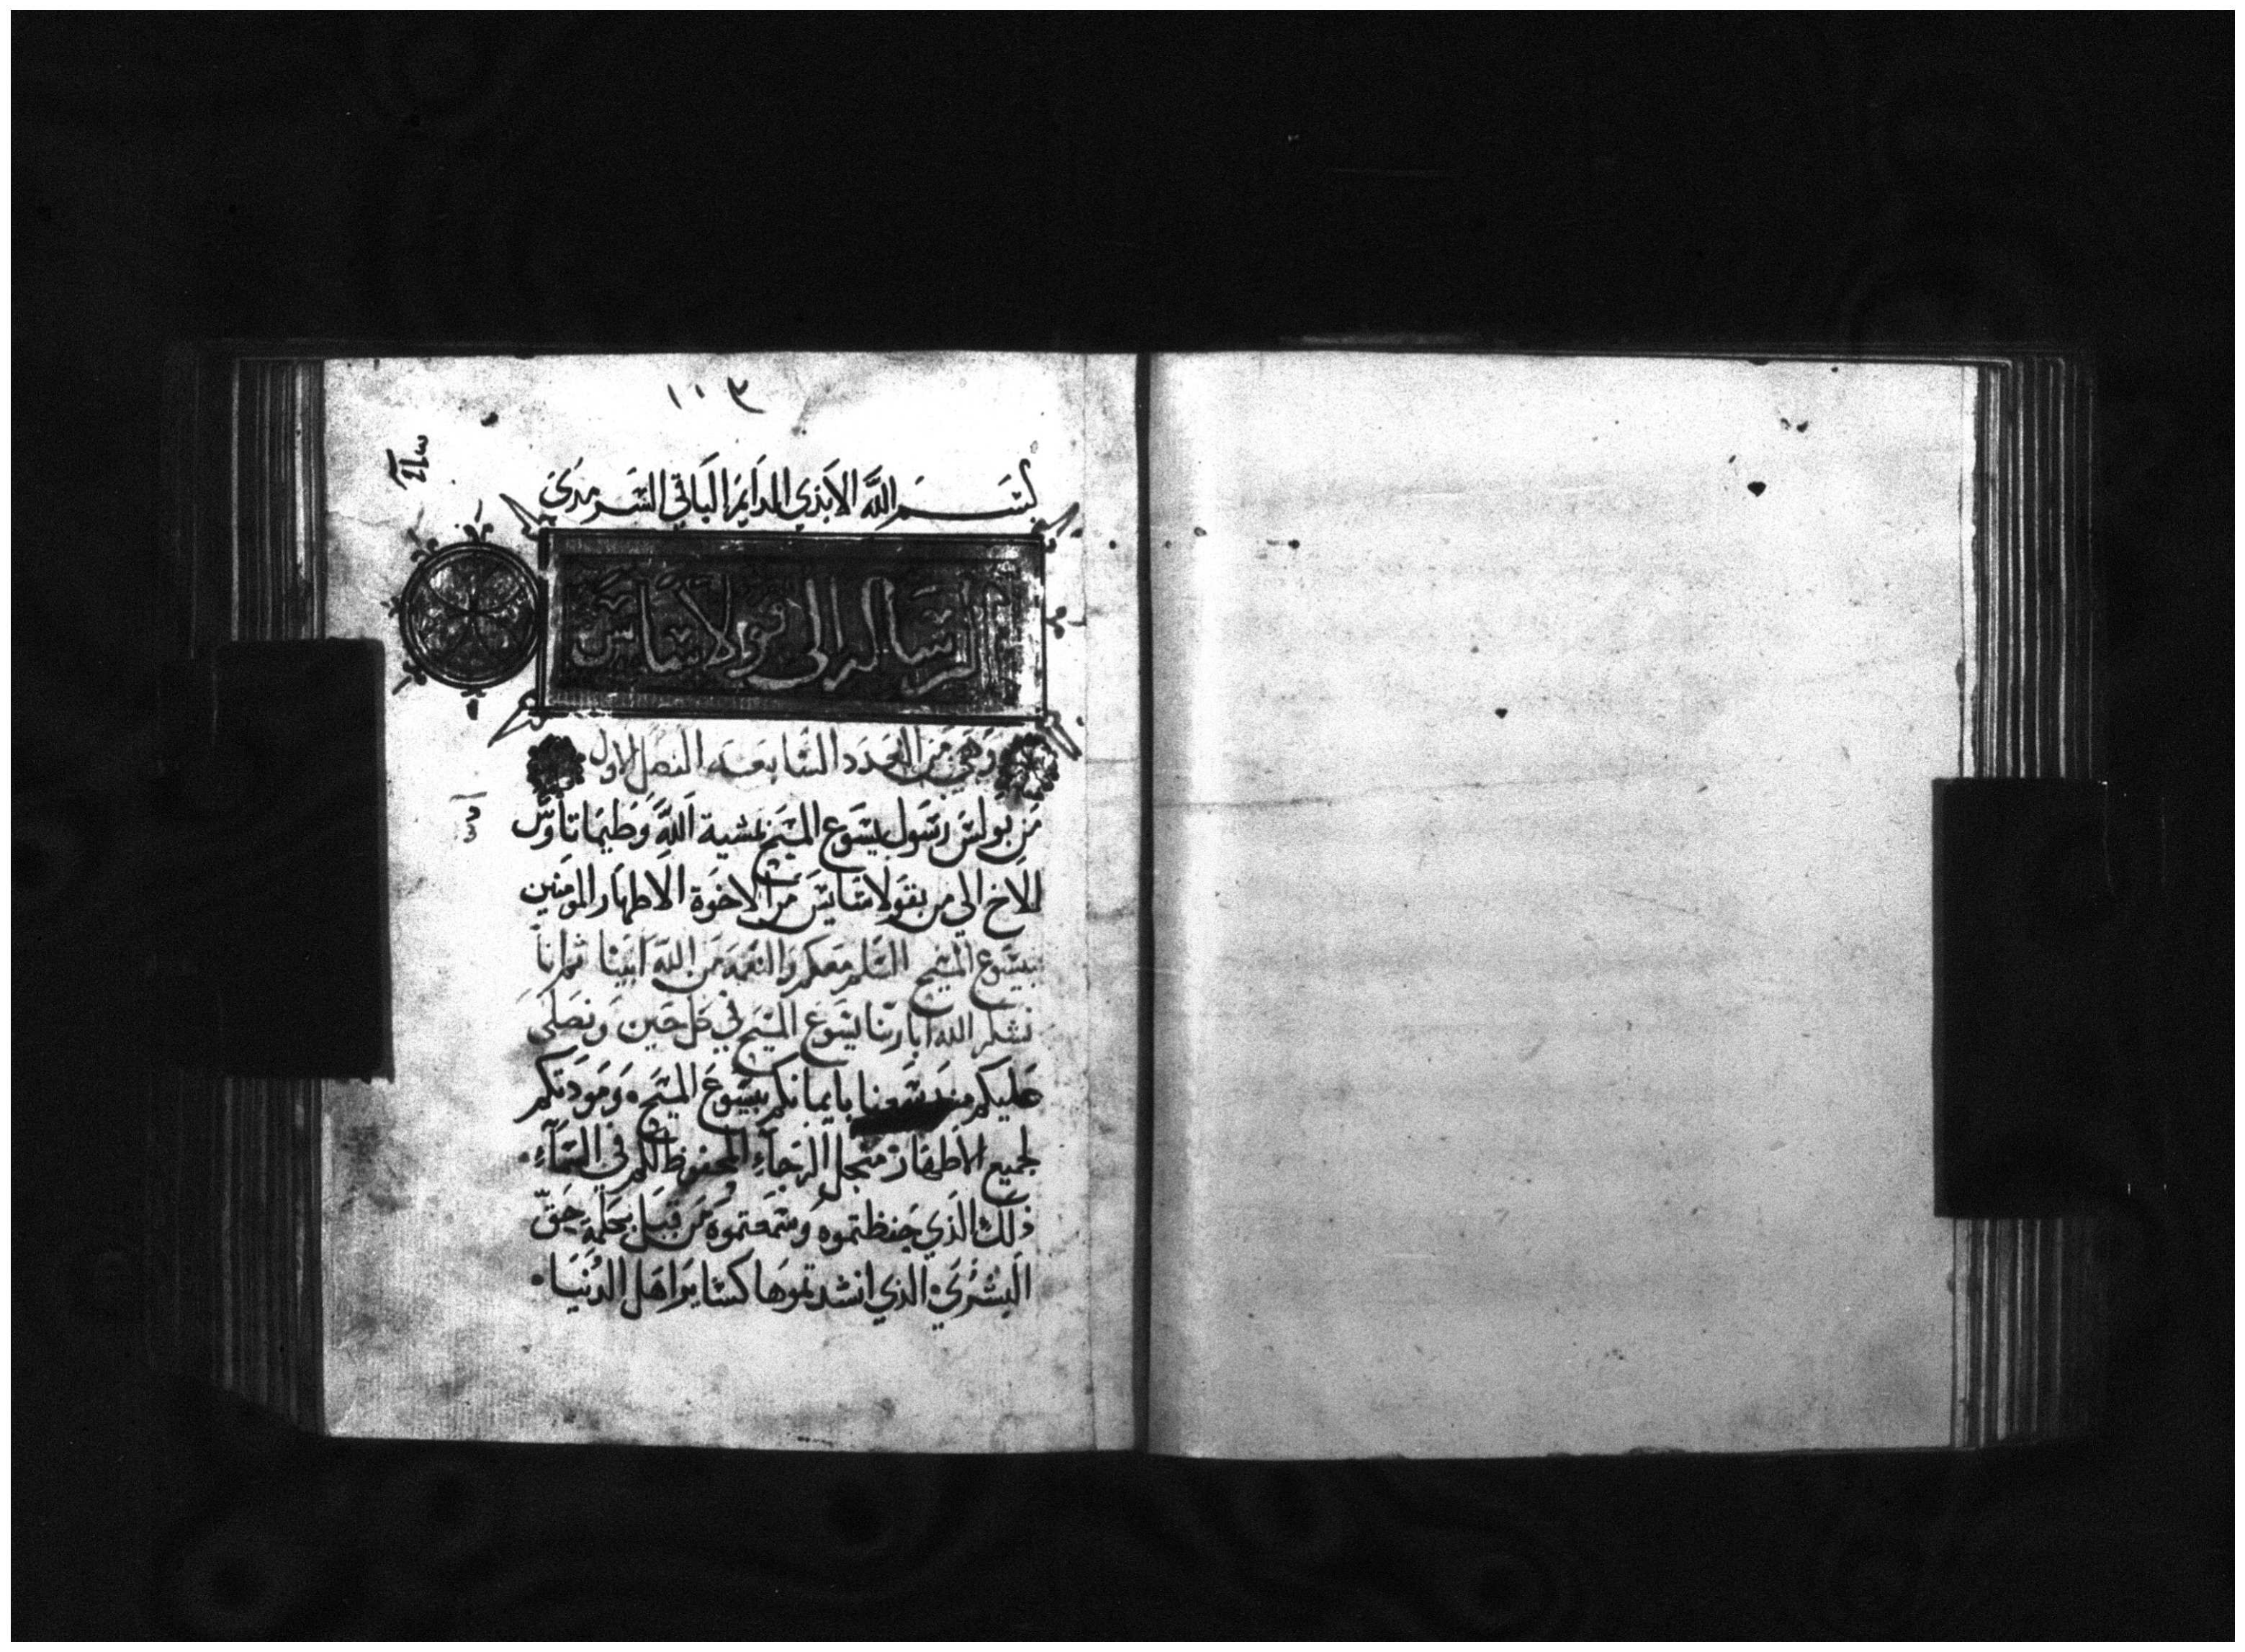 بسم الله الابدي الدايم الباقي السرمدي
الرساله الى قولاسايس
وهي من العدد السابعه الفصل الاول
من بولس رسول يسوع المسيح بمشية الله وطيماتاوس
الاخ الي من بقولاسايس من الاخوة الاطهار المومنين
بيسوع المسيح السلم معكم والنعمه من الله ابينا ثم انا
نشكر الله ابا ربنا يسوع المسيح في كل حين ونصلي
عليكم منذ سمعنا بايمانكم بيسوع المسيح ومودتكم
لجميع الاطهار منجل الرجاء المحفوظ لكم في السماء
ذلك الذي حفظتموه وسمعتموه من قبل بكلمة حق
البشري الذي انشدتموها كساير اهل الدنيا